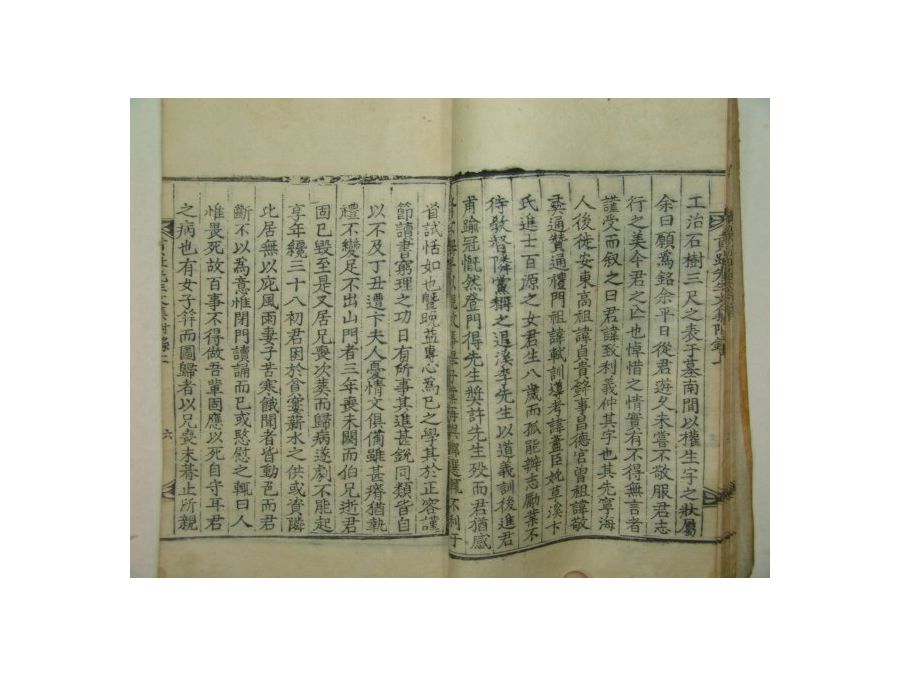 工治石樹三尺之表于墓南間以權生字之狀屬
余曰願爲銘余平日從君遊久未嘗不敬服君志
行之美今君之亡也悼惜之情實有不得無言者
謹受而叙之曰君諱致利義仲其字也其先寧海
人後徙安東高祖諱貞貴錄事昌德宮曾祖諱敬
奕通贊通禮門祖諱軾訓導考諱盡臣娩草溪卞
氏進士百源之女君生八歲而孤能辦志勵業不
待敎督隣黨稱之退溪李先生以道義訓後進君
甫踰冠慨然登門得先生奬許先生歿而君猶感
不利于
首試恬如也曁晩益專心爲己之學其於正容謹
節讀書窮理之功日有所事其進甚銳同類皆自
以不及丁丑遭卞夫人憂情文俱備雖甚瘠猶執
禮不變足不出山門者三年喪未闋而伯兄逝君
固已毁至是又居兄喪次葬而歸病遂劇不能起
享年纔三十八初君困於貧窶薪水之供或資隣
比居無以庇風雨妻子苦寒餓聞者皆動色而君
斷不以爲意惟閉門讀誦而已或慰之輒曰人
惟畏死故百事不得做吾輩固應以死自守耳君
之病也有女子笄而圖歸者以兄喪未朞止所親
六